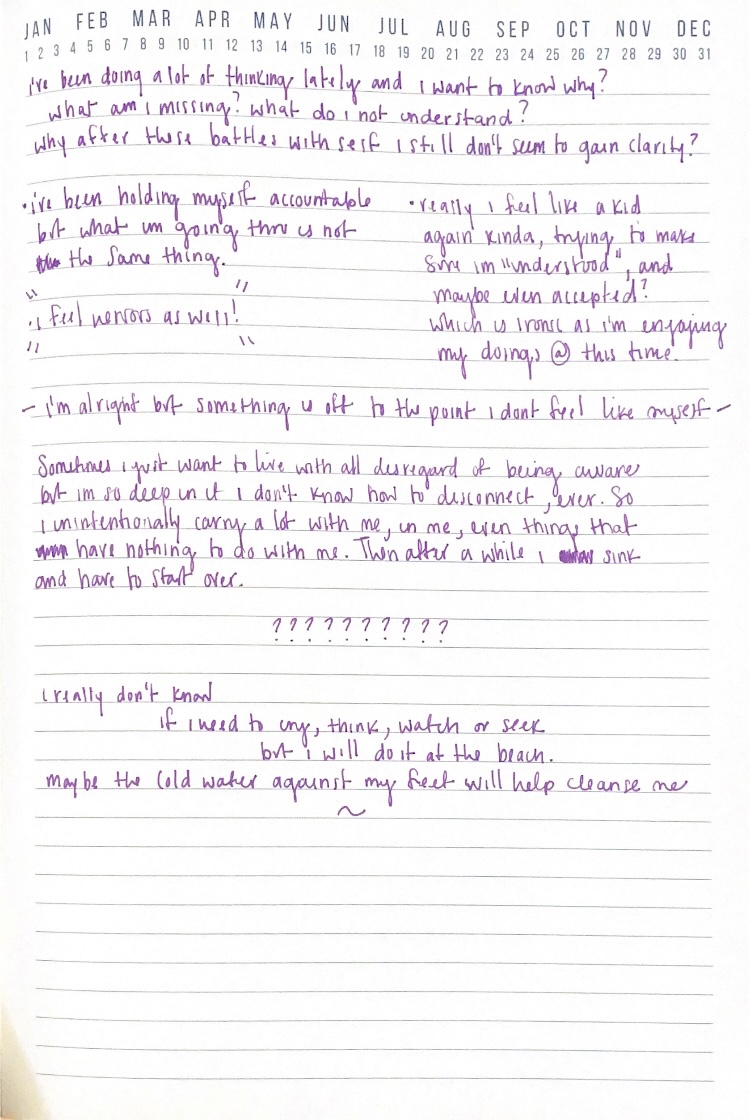 JAN FEB MAR APR MAY JUN JUL AUG SEP OCT NOV DEC
1 2 3 4 5 6 7 8 9 10 11 12 13 14 15 16 17 18 19 20 21 22 23 24 25 26 27 28 29 30 31
i've been doing a lot of thinking lately and i want to know why?
what am i missing? what do i not understand?
why after these battles with self i still don't seem to gain clarity?
• i've been holding myself accountable
but what im going thru is not
the same thing.
" "
i feel nervors as well!
" "
• really i feel like a kid
again kinda, trying to make
sure im "understood", and
maybe even accepted?
which is ironic as i'm enjoying
my doings @ this time.
- i'm alright but something is off to the point i dont feel like myself -
Sometimes i just want to live with all disregard of being aware
but im so deep in it i don't know how to disconnect, ever. So
i unintentionally carry a lot with me, in me, even things that
have nothing to do with me. Then after a while i sink
and have to start over.
? ? ? ? ? ? ? ? ? ?
i really don't know
if i need to cry, think, watch or seek
but i will do it at the beach.
maybe the cold water against my feet will help cleanse me
~